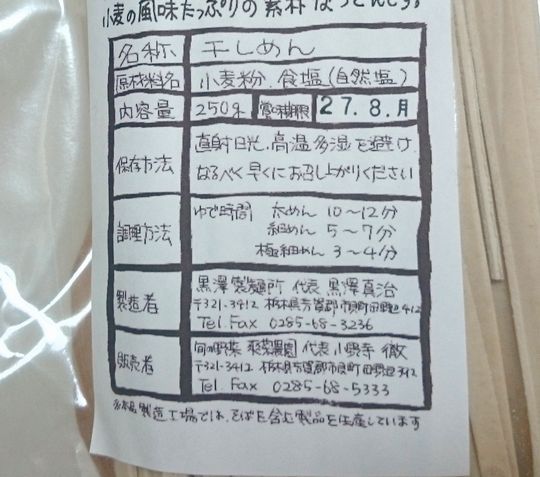 小麦の風味たっぷりの素朴なうどんです。
名称 干しめん
原材料名 小麦粉、食塩(自然塩)
内容量 250g 賞味期限 27.8.月
保存方法 直射日光、高温多湿を避け、
なるべく早くにお召し上がりください
調理方法 ゆで時間 太めん 10〜12分
細めん 5〜7分
極細めん 3〜4分
製造者 黒澤製麺所 代表 黒澤真治
〒321-3412 栃木県芳賀郡市貝町田野辺412
Tel.Fax 0285-68-3236
販売者 旬の野菜 農園 代表 小野寺 徹
〒321-3412 栃木県芳賀郡市貝町田野辺
Tel Fax 0285-68-5333
製造工場では、そばを含む製品を生産しています